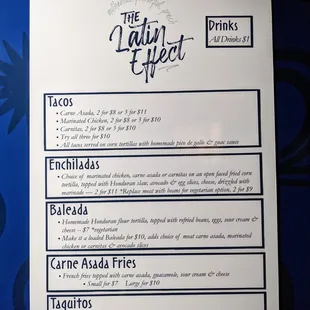 THE
Latin
Effect
Drinks
All Drinks $1
Tacos
• Carne Asada, 2 for $8 or 3 for $11
• Marinated Chicken, 2 for $8 or 3 for $10
• Carnitas, 2 for $8 or 3 for $10
• Try all three for $10
• All tacos served on corn tortillas with homemade pico de gallo & guac sauce
Enchiladas
• Choice of marinated chicken, carne asada or carnitas on an open faced fried corn
tortilla, topped with Honduran slaw, avocado & egg slices, cheese, drizzled with
marinade — 2 for $11 *Replace meat with beans for vegetarian option, 2 for $9
Baleada
• Homemade Honduran flour tortilla, topped with refried beans, eggs, sour cream &
cheese -- $7 *vegetarian
• Make it a loaded Baleada for $10, adds choice of meat carne asada, marinated
chicken or carnitas & avocado slices
Carne Asada Fries
• French fries topped with carne asada, guacamole, sour cream & cheese
• Small for $7 Large for $10
Taquitos